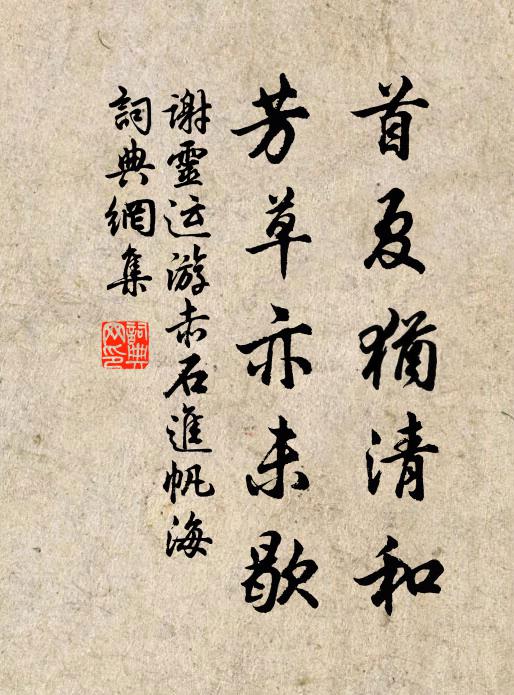 首夏猶清和
芳草亦未歇
谢靈运游赤石進帆海
詞典網集
詞典
网印